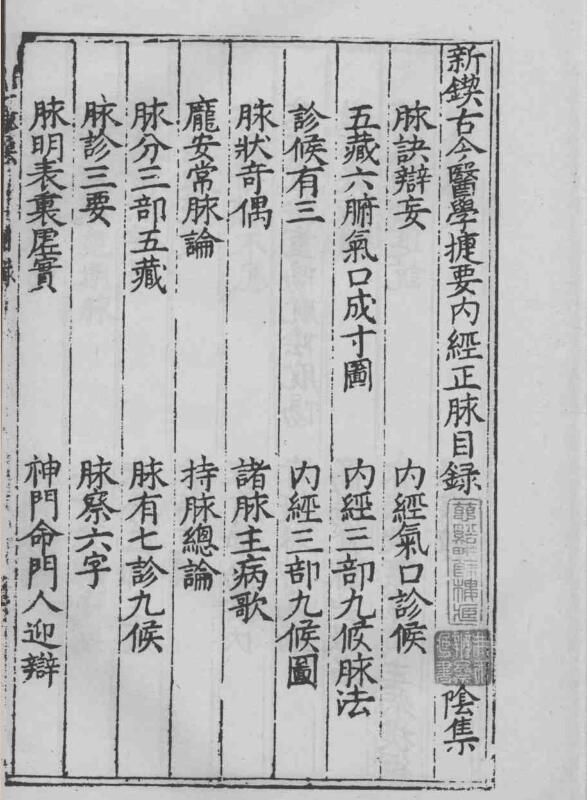 新鍥古今醫學㨗要內經正脉目錄 陰集
脉訣辯妄 內經氣口診候
五藏六腑氣口成寸圖 內經三部九候脉法
診候有三 內經三部九候圖
脉狀奇偶 諸脉主病歌
龐安常脉論 持脉總論
脉分三部五藏 脉有七診九候
脉診三要 脉察六字
脉明表裏虛實 神門命門人迎辯